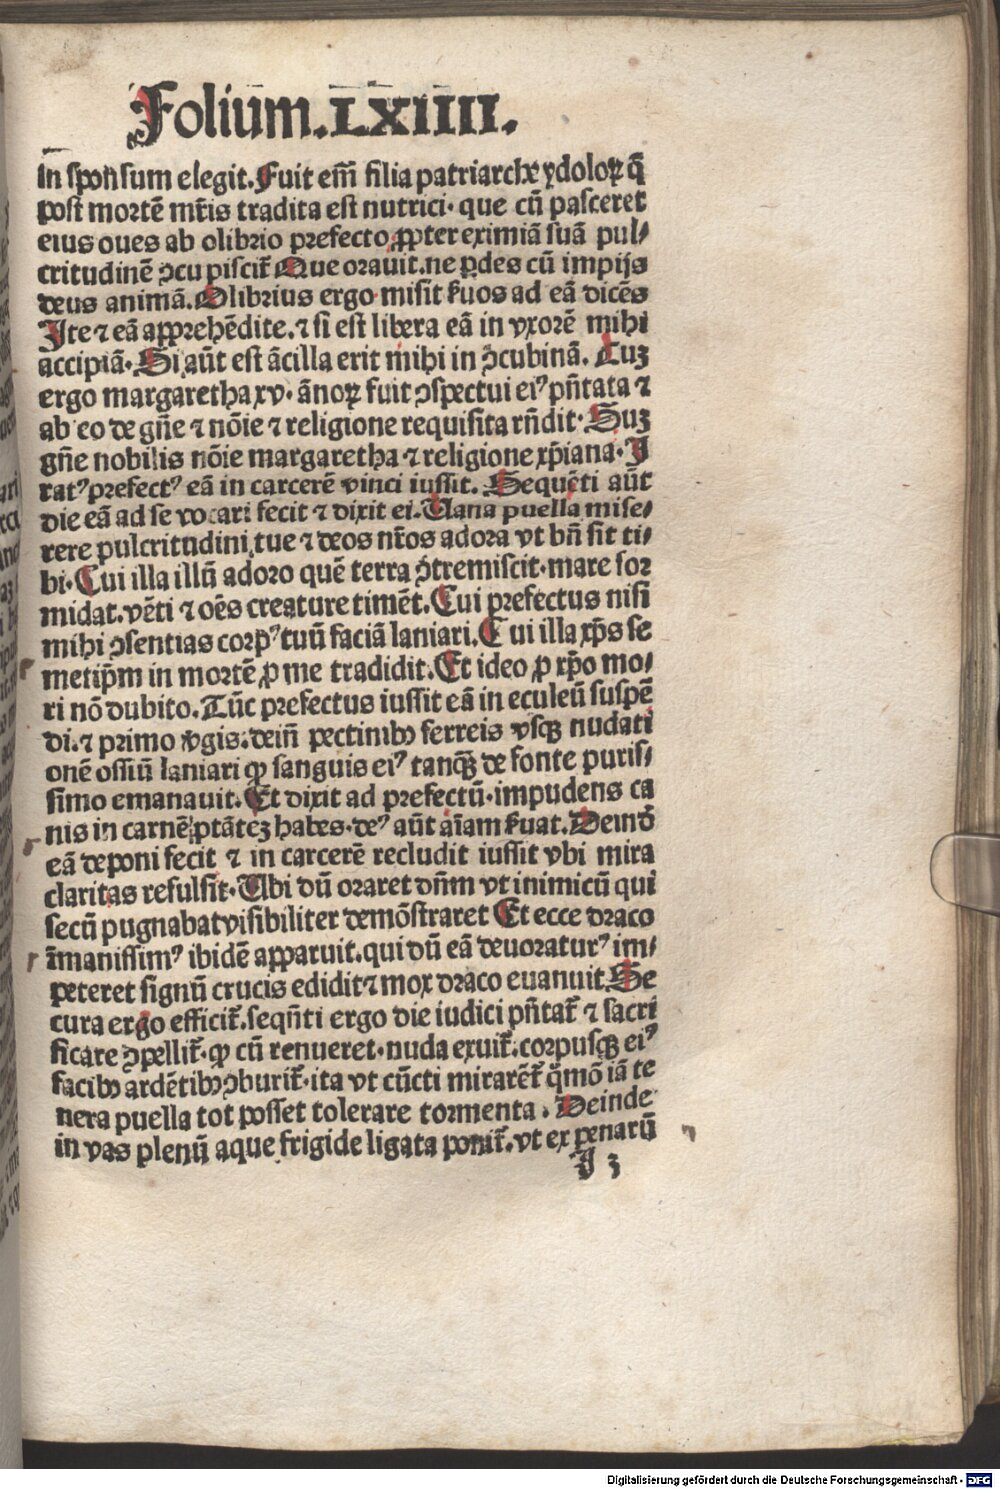 Folium. LXIIII.
in sponsum elegit. Fuit em̄ filia patriarche ydoloꝝ q̄
post mortē mr̄is tradita est nutrici· que cū pasceret
eius oues ab olibrio prefecto ꝓpter eximiā suā pul⸗
critudinē ꝯcupiscit᷑ Que orauit. ne ꝑdes cū impijs
deus animā. Olibrius ergo misit ẜuos ad eā dicēs
Ite ⁊ eā apprehēdite. ⁊ si est libera eā in vxorē mihi
accipiā. Si aūt est ācilla erit mihi in ꝯcubinā. Cuꝫ
ergo margaretha xv· ānoꝝ fuit ꝯspectui eiꝰ pn̄tata ⁊
ab eo de gn̄e ⁊ nōie ⁊ religione requisita rn̄dit· Suꝫ
gn̄e nobilis nōie margaretha ⁊ religione xp̄iana· I
ratꝰ prefectꝰ eā in carcerē vinci iussit. Sequēti aūt
die eā ad se vocari fecit ⁊ dixit ei. Uana puella mise⸗
rere pulcritudini tue ⁊ deos nr̄os adora vt bn̄ sit ti⸗
bi. Cui illa illū adoro quē terra ꝯtremiscit· mare for
midat. vēti ⁊ oēs creature timēt. Cui prefectus nisi
mihi ꝯsentias corpꝰ tuū faciā laniari. Cui illa xp̄s se
metip̄m in mortē ꝓ me tradidit. Et ideo ꝓ xp̄o mo⸗
ri nō dubito. Tūc prefectus iussit eā in eculeū suspē
di. ⁊ primo v̾gis. dein̄ pectinibꝰ ferreis vsqꝫ nudati
onē ossiū laniari ꝙ sanguis eiꝰ tanqꝫ̄ de fonte puris⸗
simo emanauit. Et dixit ad prefectū. impudens ca
nis in carnē ptāteꝫ habes. deꝰ aūt aīam ẜuat. Deinđ
eā deponi fecit ⁊ in carcerē recludit iussit vbi mira
claritas refulsit. Ubi dū oraret dn̄m vt inimicū qui
secū pugnabat visibiliter demōstraret Et ecce draco
īmanissimꝰ ibidē apparuit. qui dū eā deuoraturꝰ im⸗
peteret signū crucis edidit ⁊ mox draco euanuit. Se
cura ergo efficit᷑. seqn̄ti ergo die iudici pn̄tat᷑ ⁊ sacri
ficare ꝯpellit᷑. ꝙ cū renueret. nuda exuit᷑. corpusqꝫ eiꝰ
facibꝰ ardētibꝰ ꝯburit᷑. ita vt cūcti mirarēt᷑ q̄mō iā te
nera puella tot posset tolerare tormenta. Deinde
in vas plenū aque frigide ligata ponit᷑. vt ex penarū
I 3
Digitalisierung gefördert durch die Deutsche Forschungsgemeinschaft - DFG